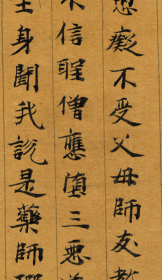 愚癡不受父母師友教
不信聖僧應墮三惡道
生身聞我說是藥師琉